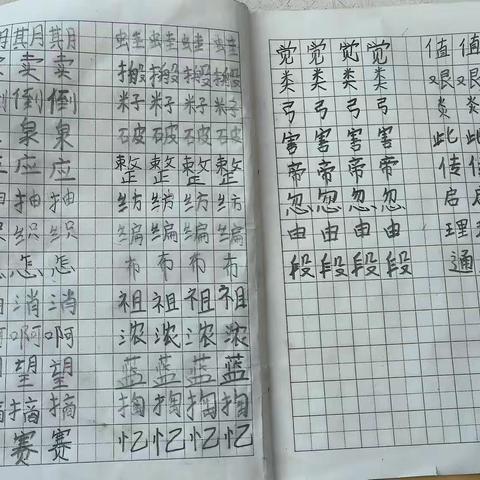 期 期 蛙 蛙 蛙 蛙
卖 卖 搬 搬 搬 搬
倒 倒 籽 籽 籽 籽
泉 泉 破 破 破 破
应 应 整 整 整 整
抽 抽 纺 纺 纺 纺
织 织 编 编 编 编
怎 怎 布 布 布 布
消 消 祖 祖 祖 祖
啊 啊 浓 浓 浓 浓
望 望 蓝 蓝 蓝 蓝
摘 摘 掏 掏 掏 掏
赛 赛 忆 忆 忆 忆
觉 觉 觉 觉 值 值
类 类 类 类 艰 艰
弓 弓 弓 弓 炎 炎
害 害 害 害 此 此
帝 帝 帝 帝 传 传
忽 忽 忽 忽 启 启
由 由 由 由 理 理
段 段 段 段 通